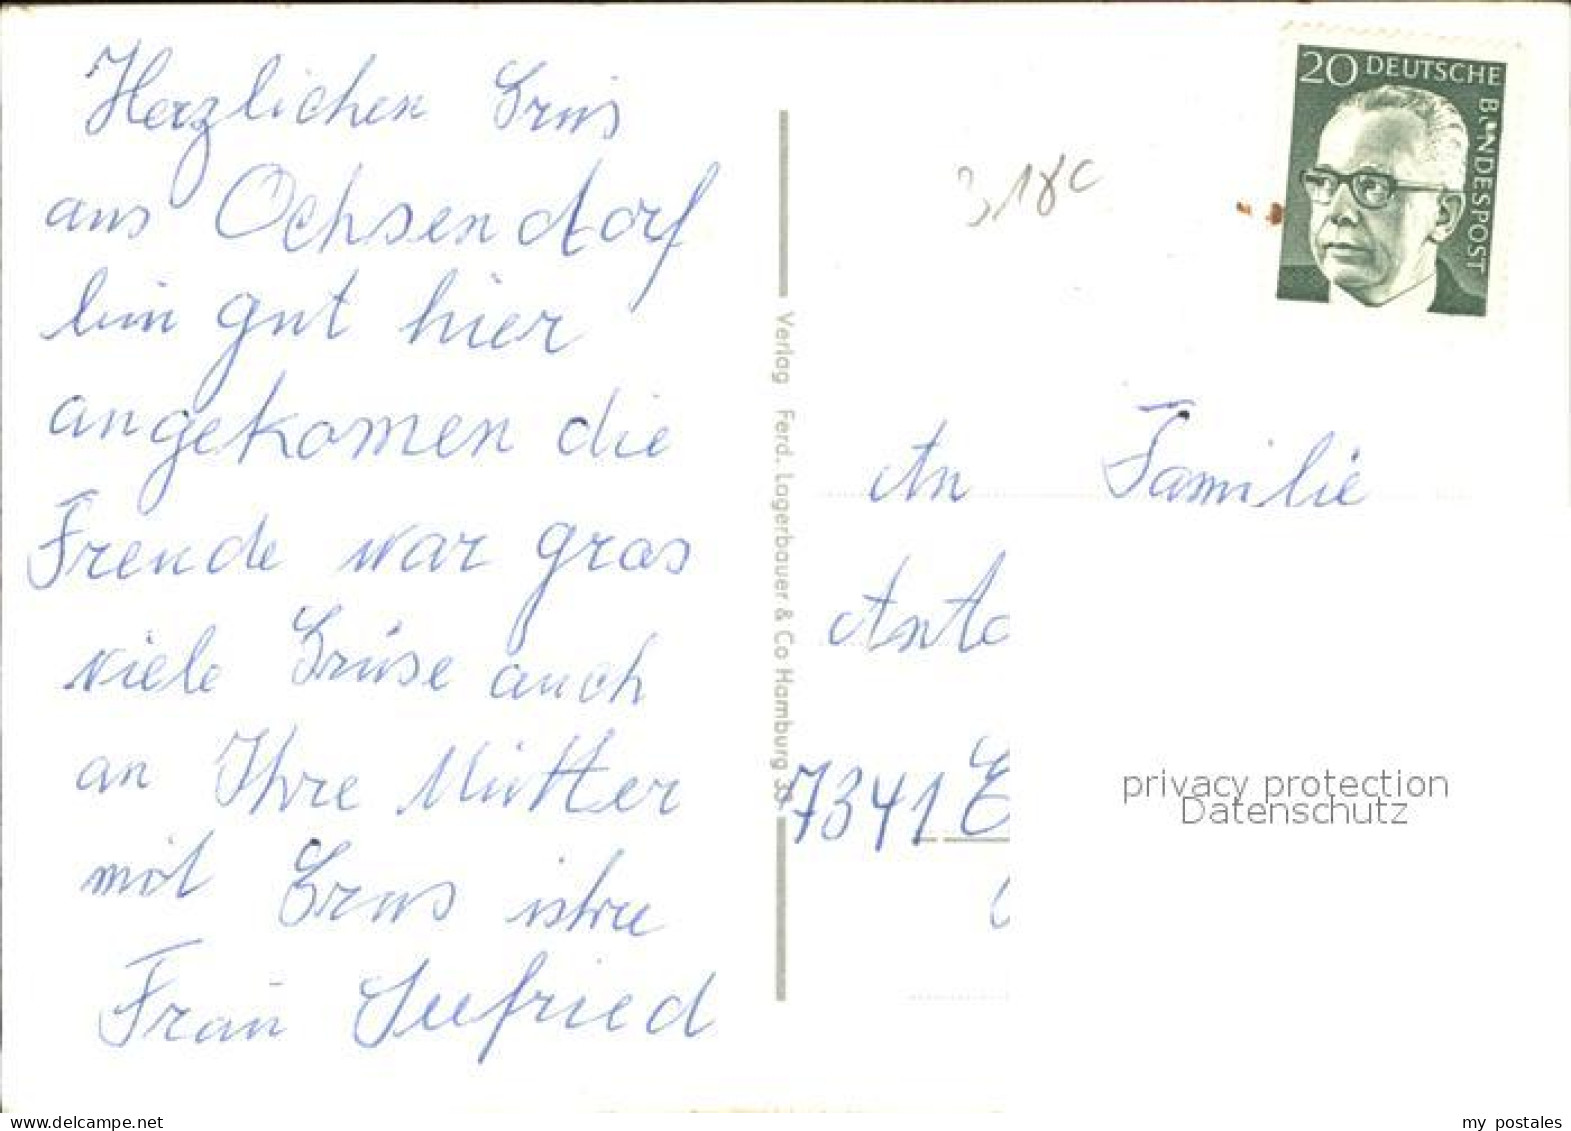 Herzlichen Grus
aus Ochsendorf
bin gut hier
angekomen die
Freude war gros
viele Grüse auch
an Ihre Mutter
mit Grus
Frau Seefried
Verlag Ferd. Lagerbauer & Co Hamburg 33
20 DEUTSCHE
BUNDESPOST
An Familie
7341 E
privacy protection
Datenschutz
my postales